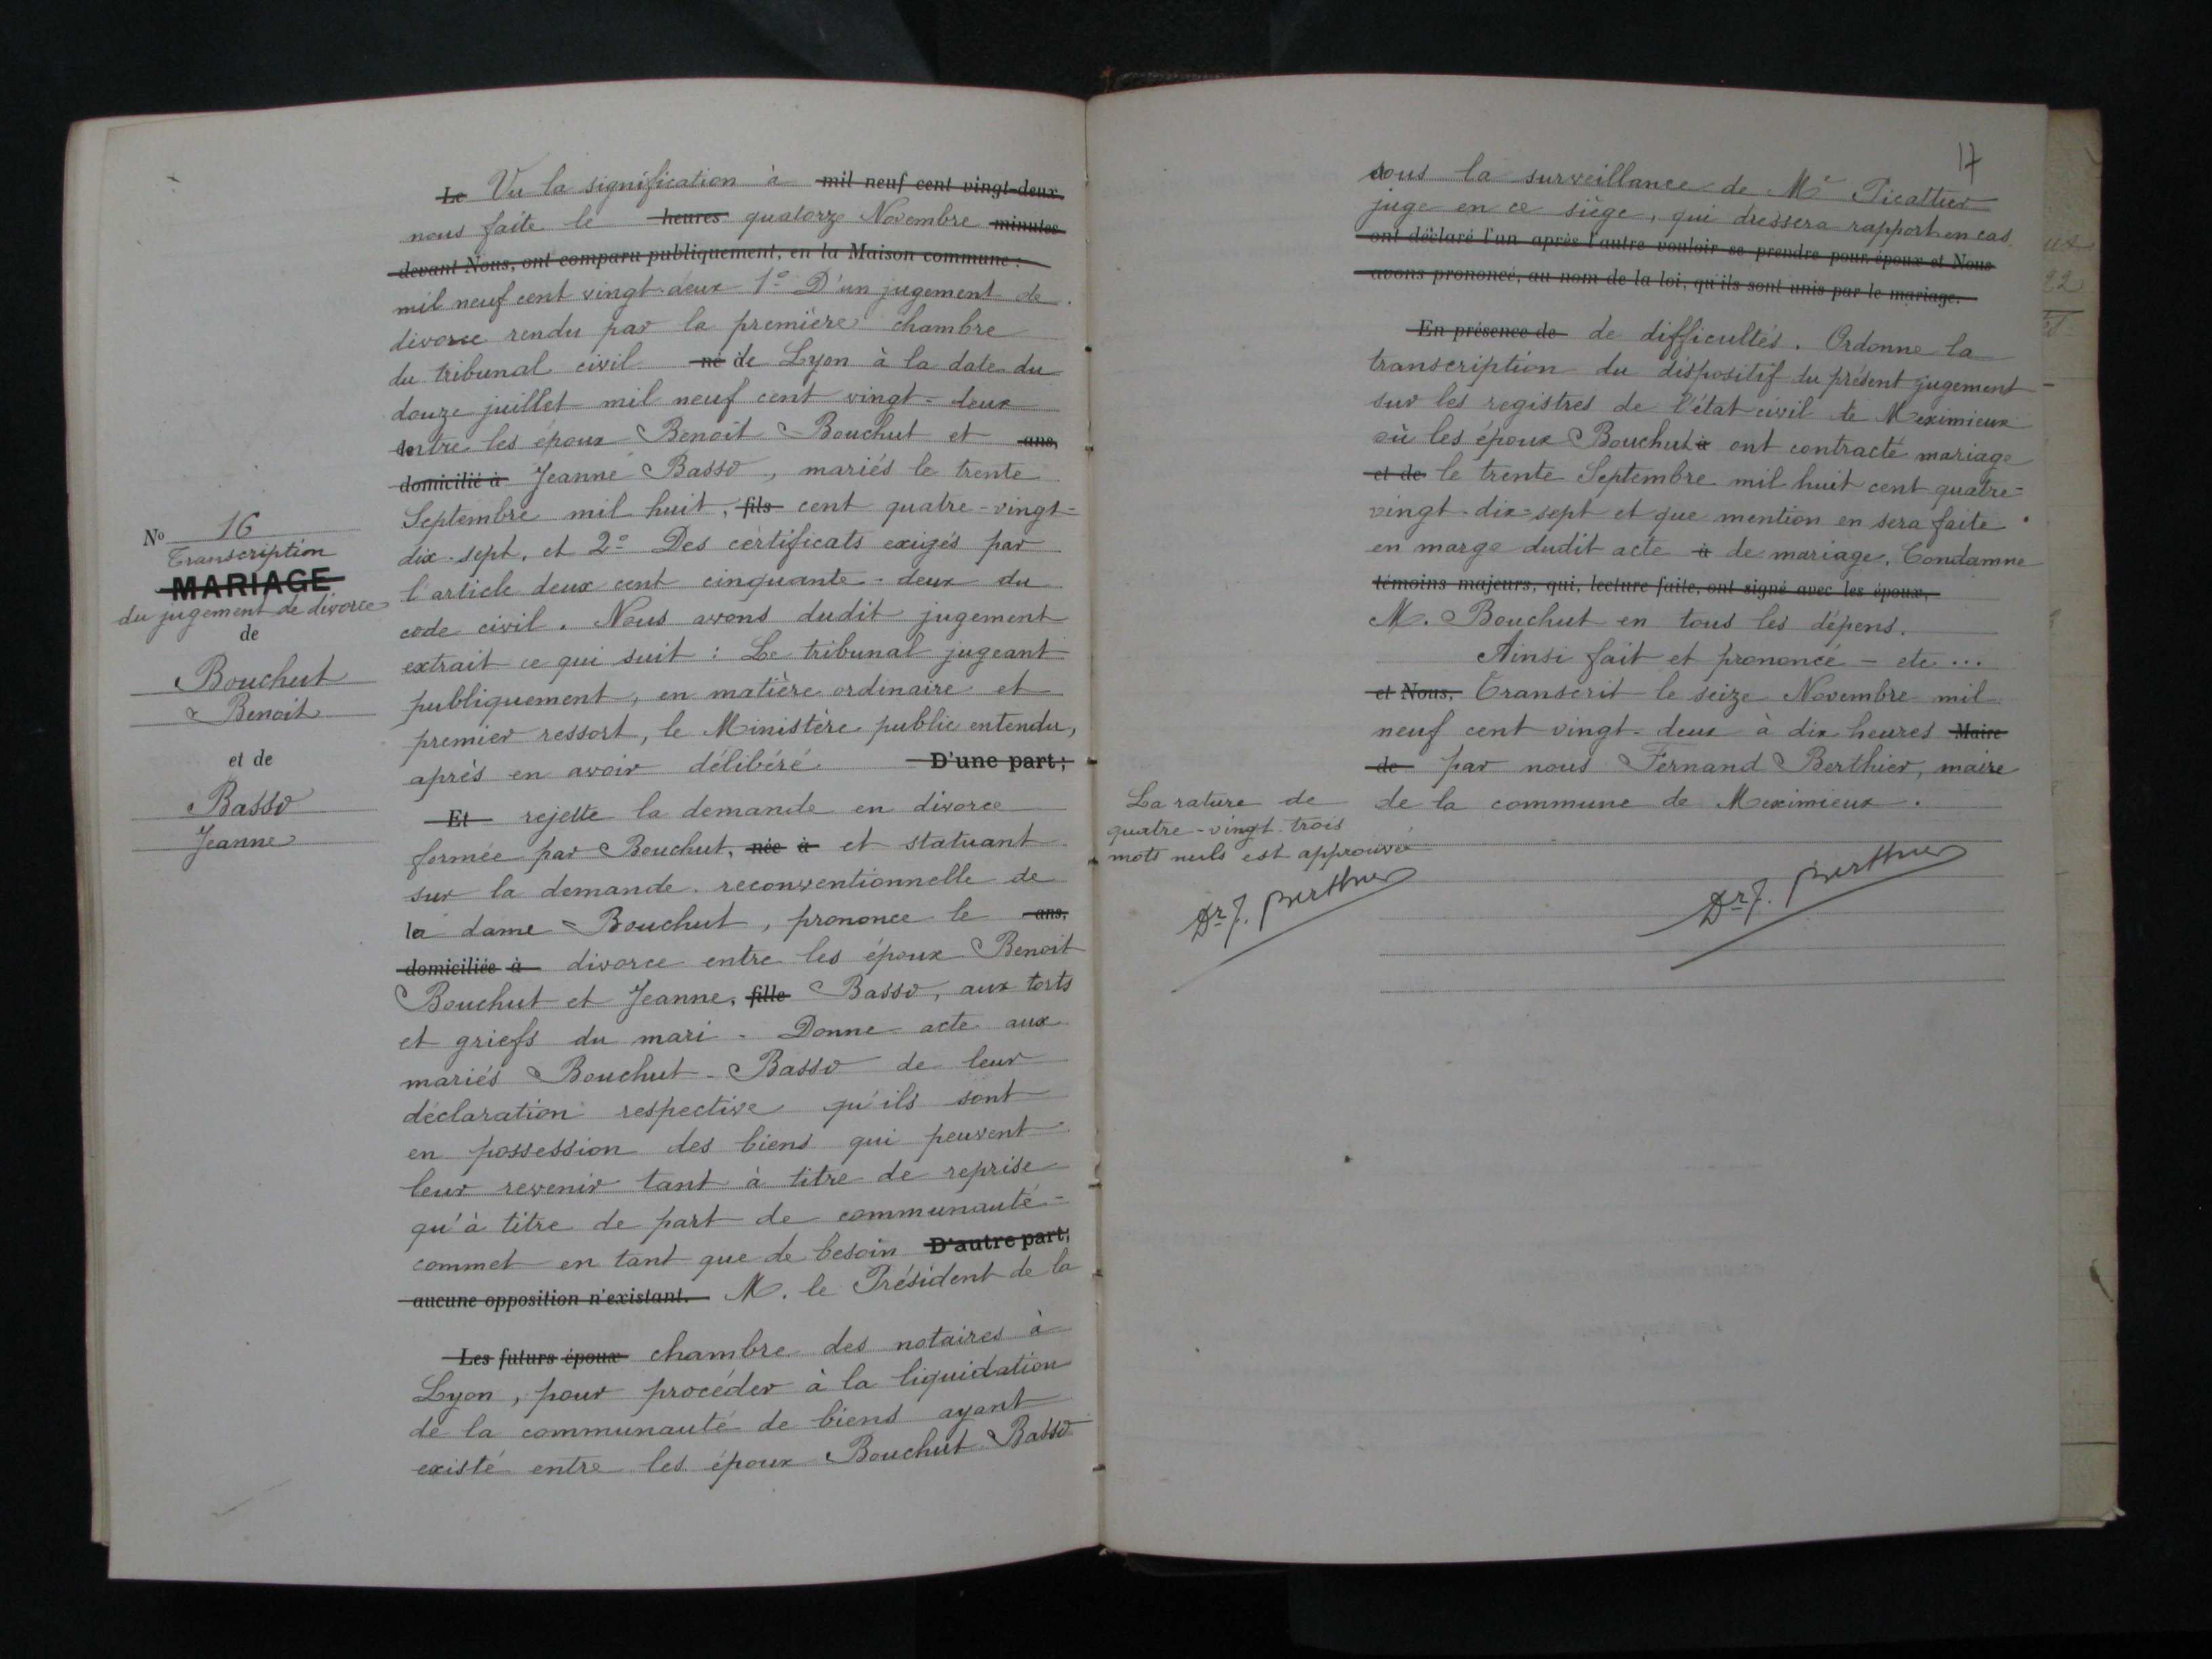 No 16
Transcription
MARIAGE
du jugement de divorce
de
Bouchut
Benoit
et de
Basso
Jeanne
Le Vu la signification à mil neuf cent vingt-deux
nous faite le heures quatorze Novembre minutes
devant Nous, ont comparu publiquement, en la Maison commune :
mil neuf cent vingt-deux 1° D'un jugement de
divorce rendu par la première chambre
du tribunal civil né de Lyon à la date du
douze juillet mil neuf cent vingt-deux
entre les époux Benoit Bouchut et ans,
domicilié à Jeanne Basso, mariés le trente
Septembre mil huit, fils cent quatre-vingt-
dix-sept, et 2° Des certificats exigés par
l'article deux cent cinquante-deux du
code civil. Nous avons dudit jugement
extrait ce qui suit : Le tribunal jugeant
publiquement, en matière ordinaire et
premier ressort, le Ministère public entendu,
après en avoir délibéré D'une part;
Et rejette la demande en divorce
formée par Bouchut, née à et statuant
sur la demande reconventionnelle de
la dame Bouchut, prononce le ans,
domiciliée à divorce entre les époux Benoit
Bouchut et Jeanne, fille Basso, aux torts
et griefs du mari. Donne acte aux
mariés Bouchut-Basso de leur
déclaration respective qu'ils sont
en possession des biens qui peuvent
leur revenir tant à titre de reprise
qu'à titre de part de communauté-
commet en tant que de besoin D'autre part;
aucune opposition n'existant. M. le Président de la
Les futurs époux chambre des notaires à
Lyon, pour procéder à la liquidation
de la communauté de biens ayant
existé entre les époux Bouchut Basso
17
sous la surveillance de Mr Picattier
juge en ce siège, qui dressera rapport en cas
ont déclaré l'un après l'autre vouloir se prendre pour époux et Nous
avons prononcé, au nom de la loi, qu'ils sont unis par le mariage.
En présence de de difficultés. Ordonne la
transcription du dispositif du présent jugement
sur les registres de l'état civil de Meximieux
où les époux Bouchut à ont contracté mariage
et de le trente Septembre mil huit cent quatre-
vingt-dix-sept et que mention en sera faite
en marge dudit acte à de mariage. Condamne
témoins majeurs, qui, lecture faite, ont signé avec les époux,
M. Bouchut en tous les dépens.
Ainsi fait et prononcé - etc...
et Nous, Transcrit le seize Novembre mil
neuf cent vingt-deux à dix heures Maire
de par nous Fernand Berthier, maire
de la commune de Meximieux.
La rature de
quatre-vingt-trois
mots nuls est approuvée
Dr F. Berthier
Dr F. Berthier